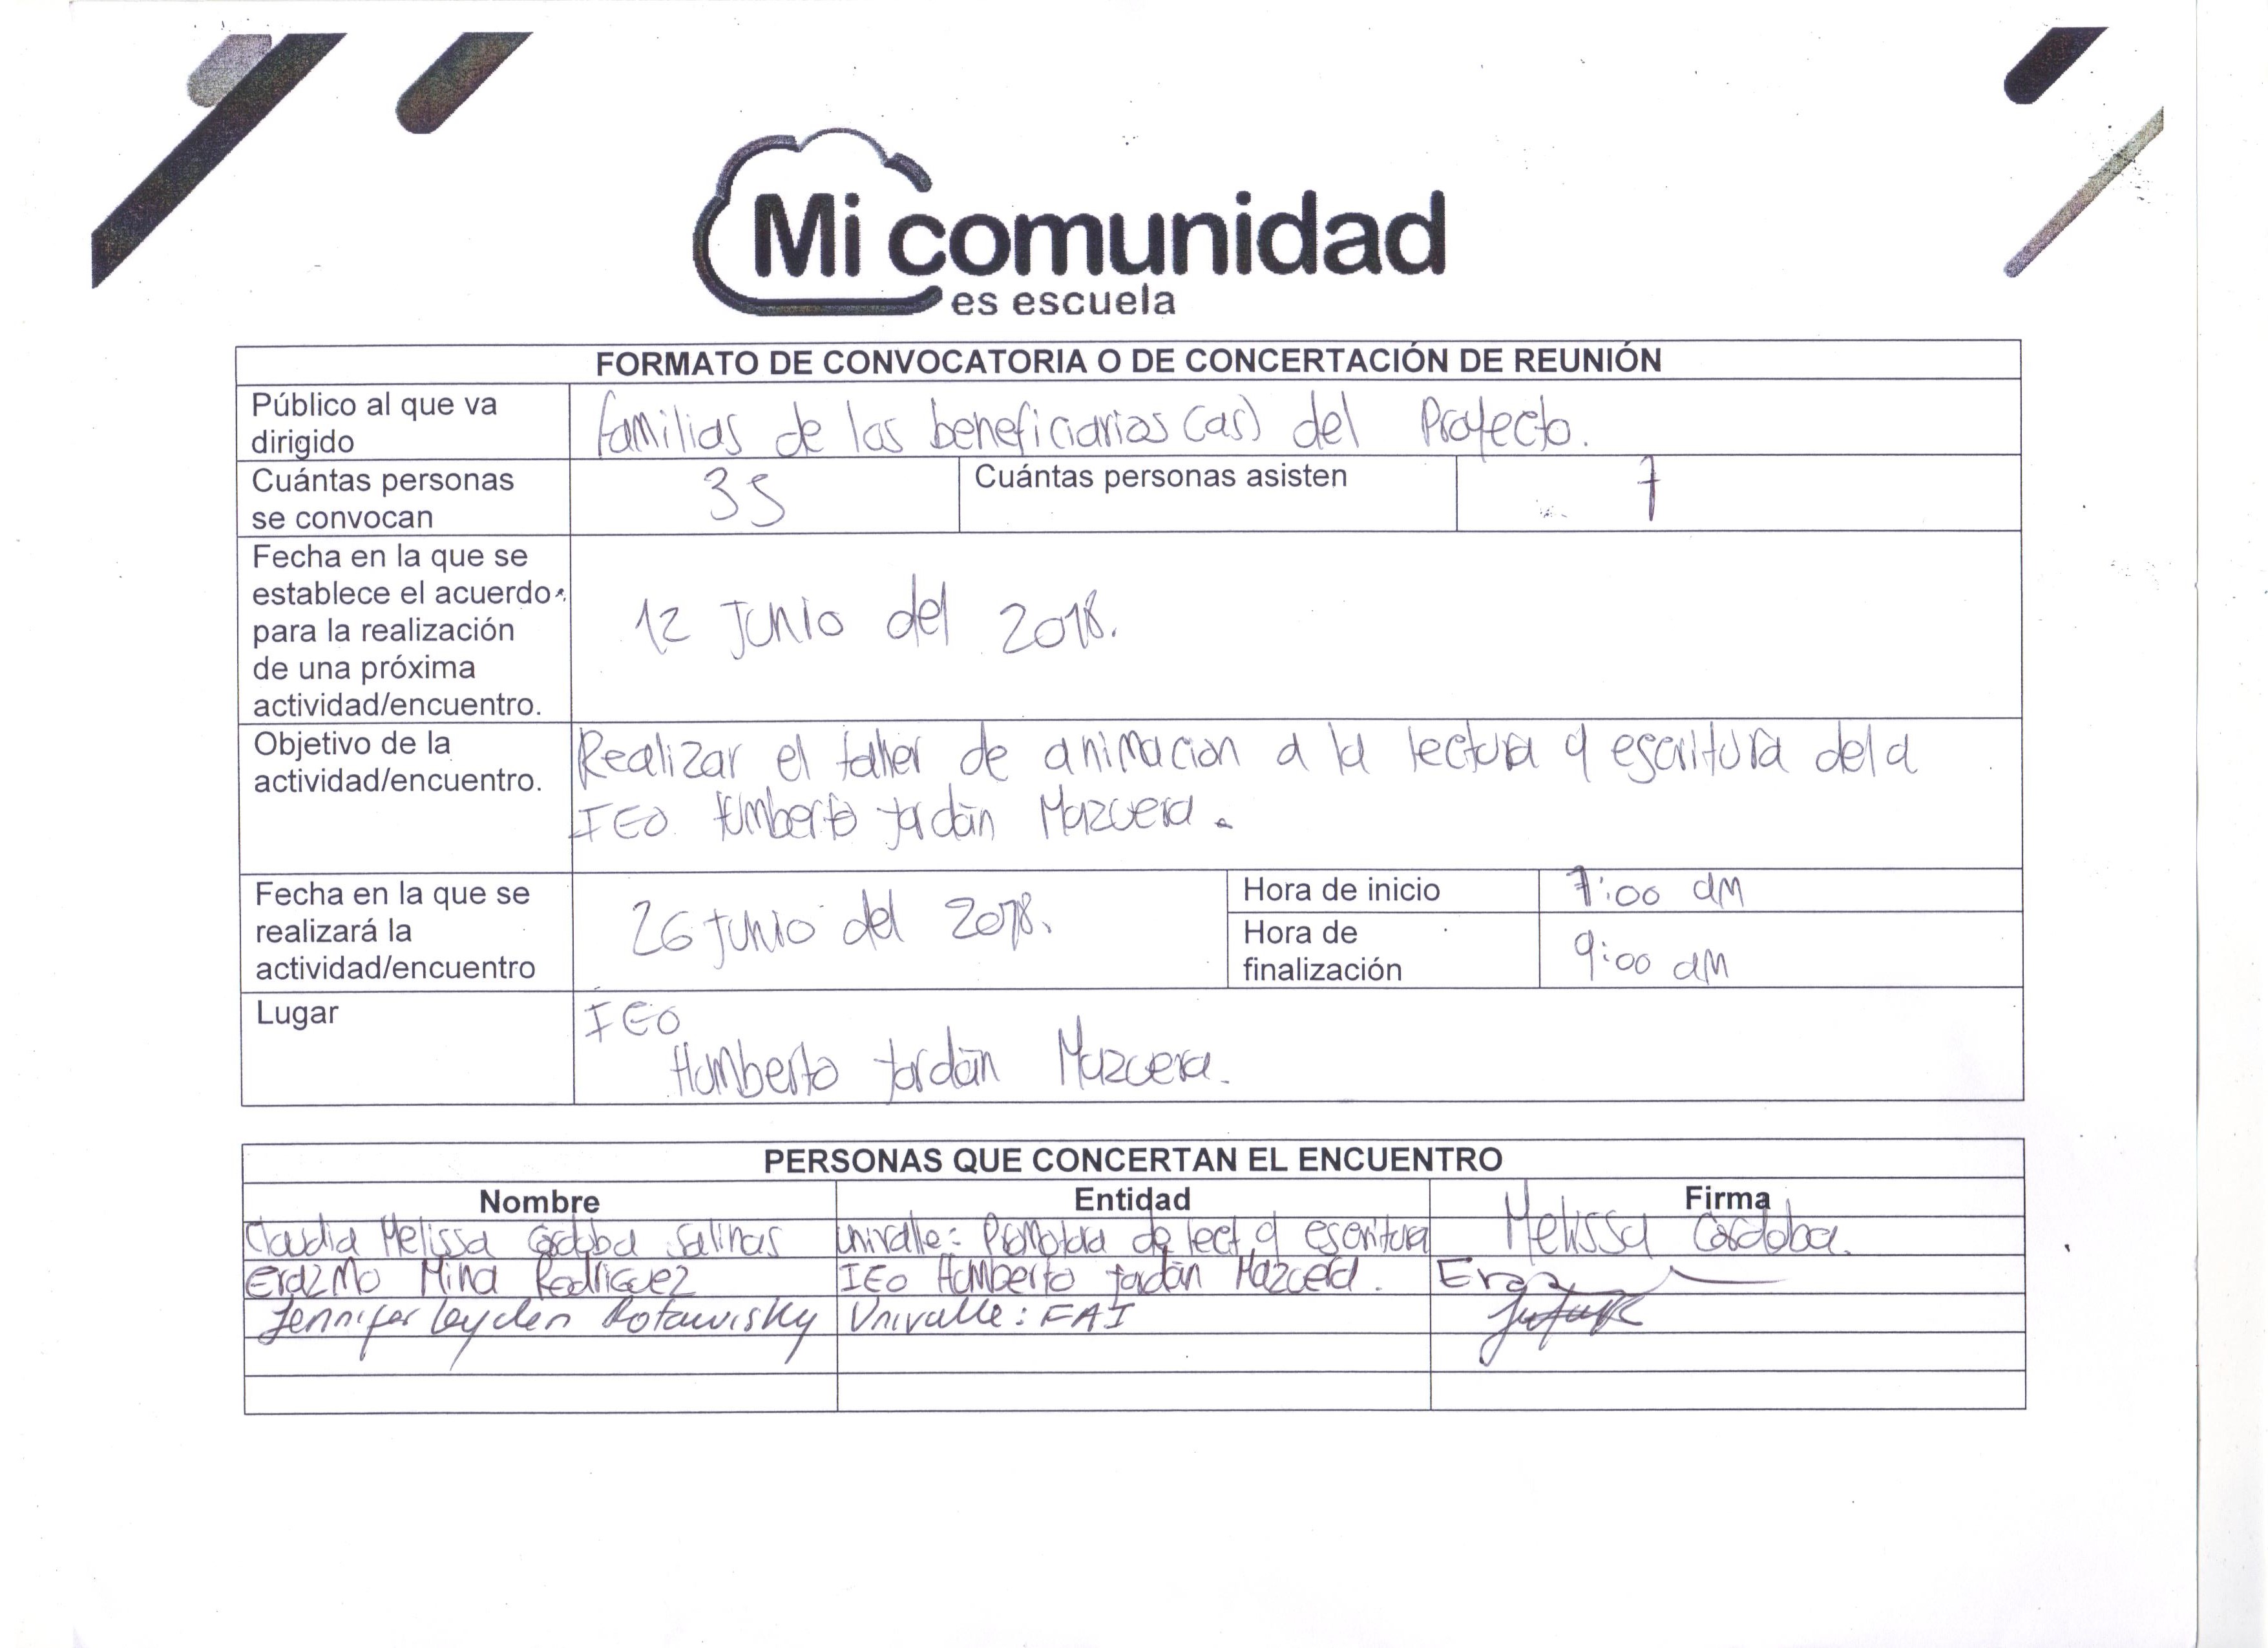 Mi comunidad
es escuela
FORMATO DE CONVOCATORIA O DE CONCERTACIÓN DE REUNIÓN
Público al que va
dirigido
familias de los beneficiarios (as) del Proyecto.
Cuántas personas
se convocan
35
Cuántas personas asisten
7
Fecha en la que se
establece el acuerdo
para la realización
de una próxima
actividad/encuentro.
12 Junio del 2018.
Objetivo de la
actividad/encuentro.
Realizar el taller de animacion a la lectura y escritura dela
IEO Humberto Jordán Mazuera.
Fecha en la que se
realizará la
actividad/encuentro
26 Junio del 2018.
Hora de inicio
7:00 am
Hora de
finalización
9:00 am
Lugar
IEO
Humberto Jordán Mazuera.
PERSONAS QUE CONCERTAN EL ENCUENTRO
Nombre Entidad Firma
Claudia Melissa Córdoba Salinas Univalle: Promotora de lect y escritura Melissa Cordoba.
Erazmo Mina Rodriguez IEO Humberto Jordán Mazuera.
Jennifer Leyden Rotawisky Univalle: FAI